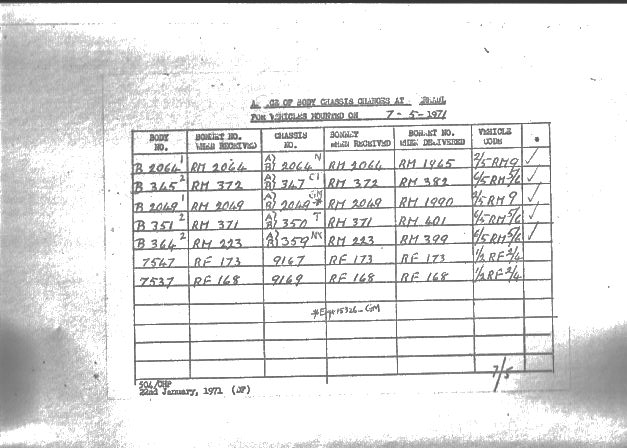 OF BODY CHASSIS CHANGES AT
FOR VEHICLES MOUNTED ON 7-5-1971
BODY NO. BONNET NO. WHEN RECEIVED CHASSIS NO. BONNET WHEN RECEIVED BONNET NO. WHEN DELIVERED VEHICLE CODE *
B 2064 1 RM 2064 A) B) 2064 N RM 2064 RM 1465 2/5 RM 9 ✓
B 345 2 RM 372 A) B) 347 CI RM 372 RM 382 6/5 RM 5/6 ✓
B 2049 1 RM 2049 A) B) 2049 GM * RM 2049 RM 1990 2/5 RM 9 ✓
B 351 2 RM 371 A) B) 350 T RM 371 RM 401 6/5 RM 5/6 ✓
B 364 2 RM 223 A) B) 359 NX RM 223 RM 399 6/5 RM 5/6 ✓
7547 RF 173 9167 RF 173 RF 173 1/2 RF 2/4
7537 RF 168 9169 RF 168 RF 168 1/2 RF 2/4
15326 - GM
7/5
504/CHP
22nd January, 1971 (JF)